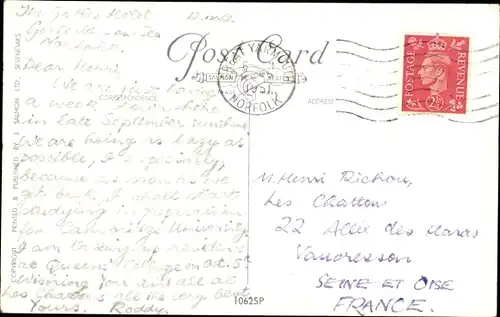 Hotel
Gorleston-on-Sea
Norfolk.
Dear Henri,
We are just having
a week
in late September sunshine.
We are being as lazy as
possible, I especially,
because as soon as we
get back, I shall start
studying in preparation
for Cambridge University.
I am taking up residence
at Queens' College on Oct. 5th
Wishing you and all at
Les Chattons the very best
Yours, Roddy.
Post Card
CORRESPONDENCE
ADDRESS
GT YARMOUTH
1951
NORFOLK
POSTAGE
REVENUE
2½D
M. Henri Dichou,
Les Chattons
22 Allée des Haras
Vaucresson
SEINE ET OISE
FRANCE.
COPYRIGHT PRINTED & PUBLISHED BY J. SALMON LTD. SEVENOAKS
10625P